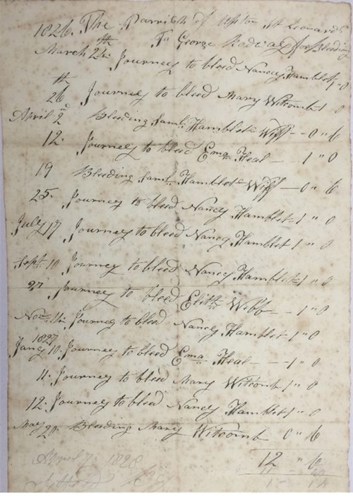 1826. The Parrish of Upton St Leonards
To George Redvas for Bleeding
March 24th Journey to bleed Nancy Hamblet 1"0
26th Journey to bleed Mary Witcomb 1 0
April 2 Bleeding Saml Hamblet Wiff – 0"6
12. Journey to bleed Ema Heal 1"0
19 Bleeding Saml Hamblet Wiff – 0"6
25. Journey to bleed Nancy Hamblet 1"0
July 17 Journey to bleed Nancy Hamblet 1"0
Sept 10 Journey to bleed Nancy Hamblet 1"0
27 Journey to bleed Edith Webb – 1"0
Nov 4. Journey to bleed Nancy Hamblet 1"0
1827
Jany 10. Journey to bleed Ema Heal – 1"0
11. Journey to bleed Mary Witcomb 1"0
12. Journey to bleed Nancy Hamblet 1"0
Bleeding Mary Witcomb 0"6
12"6